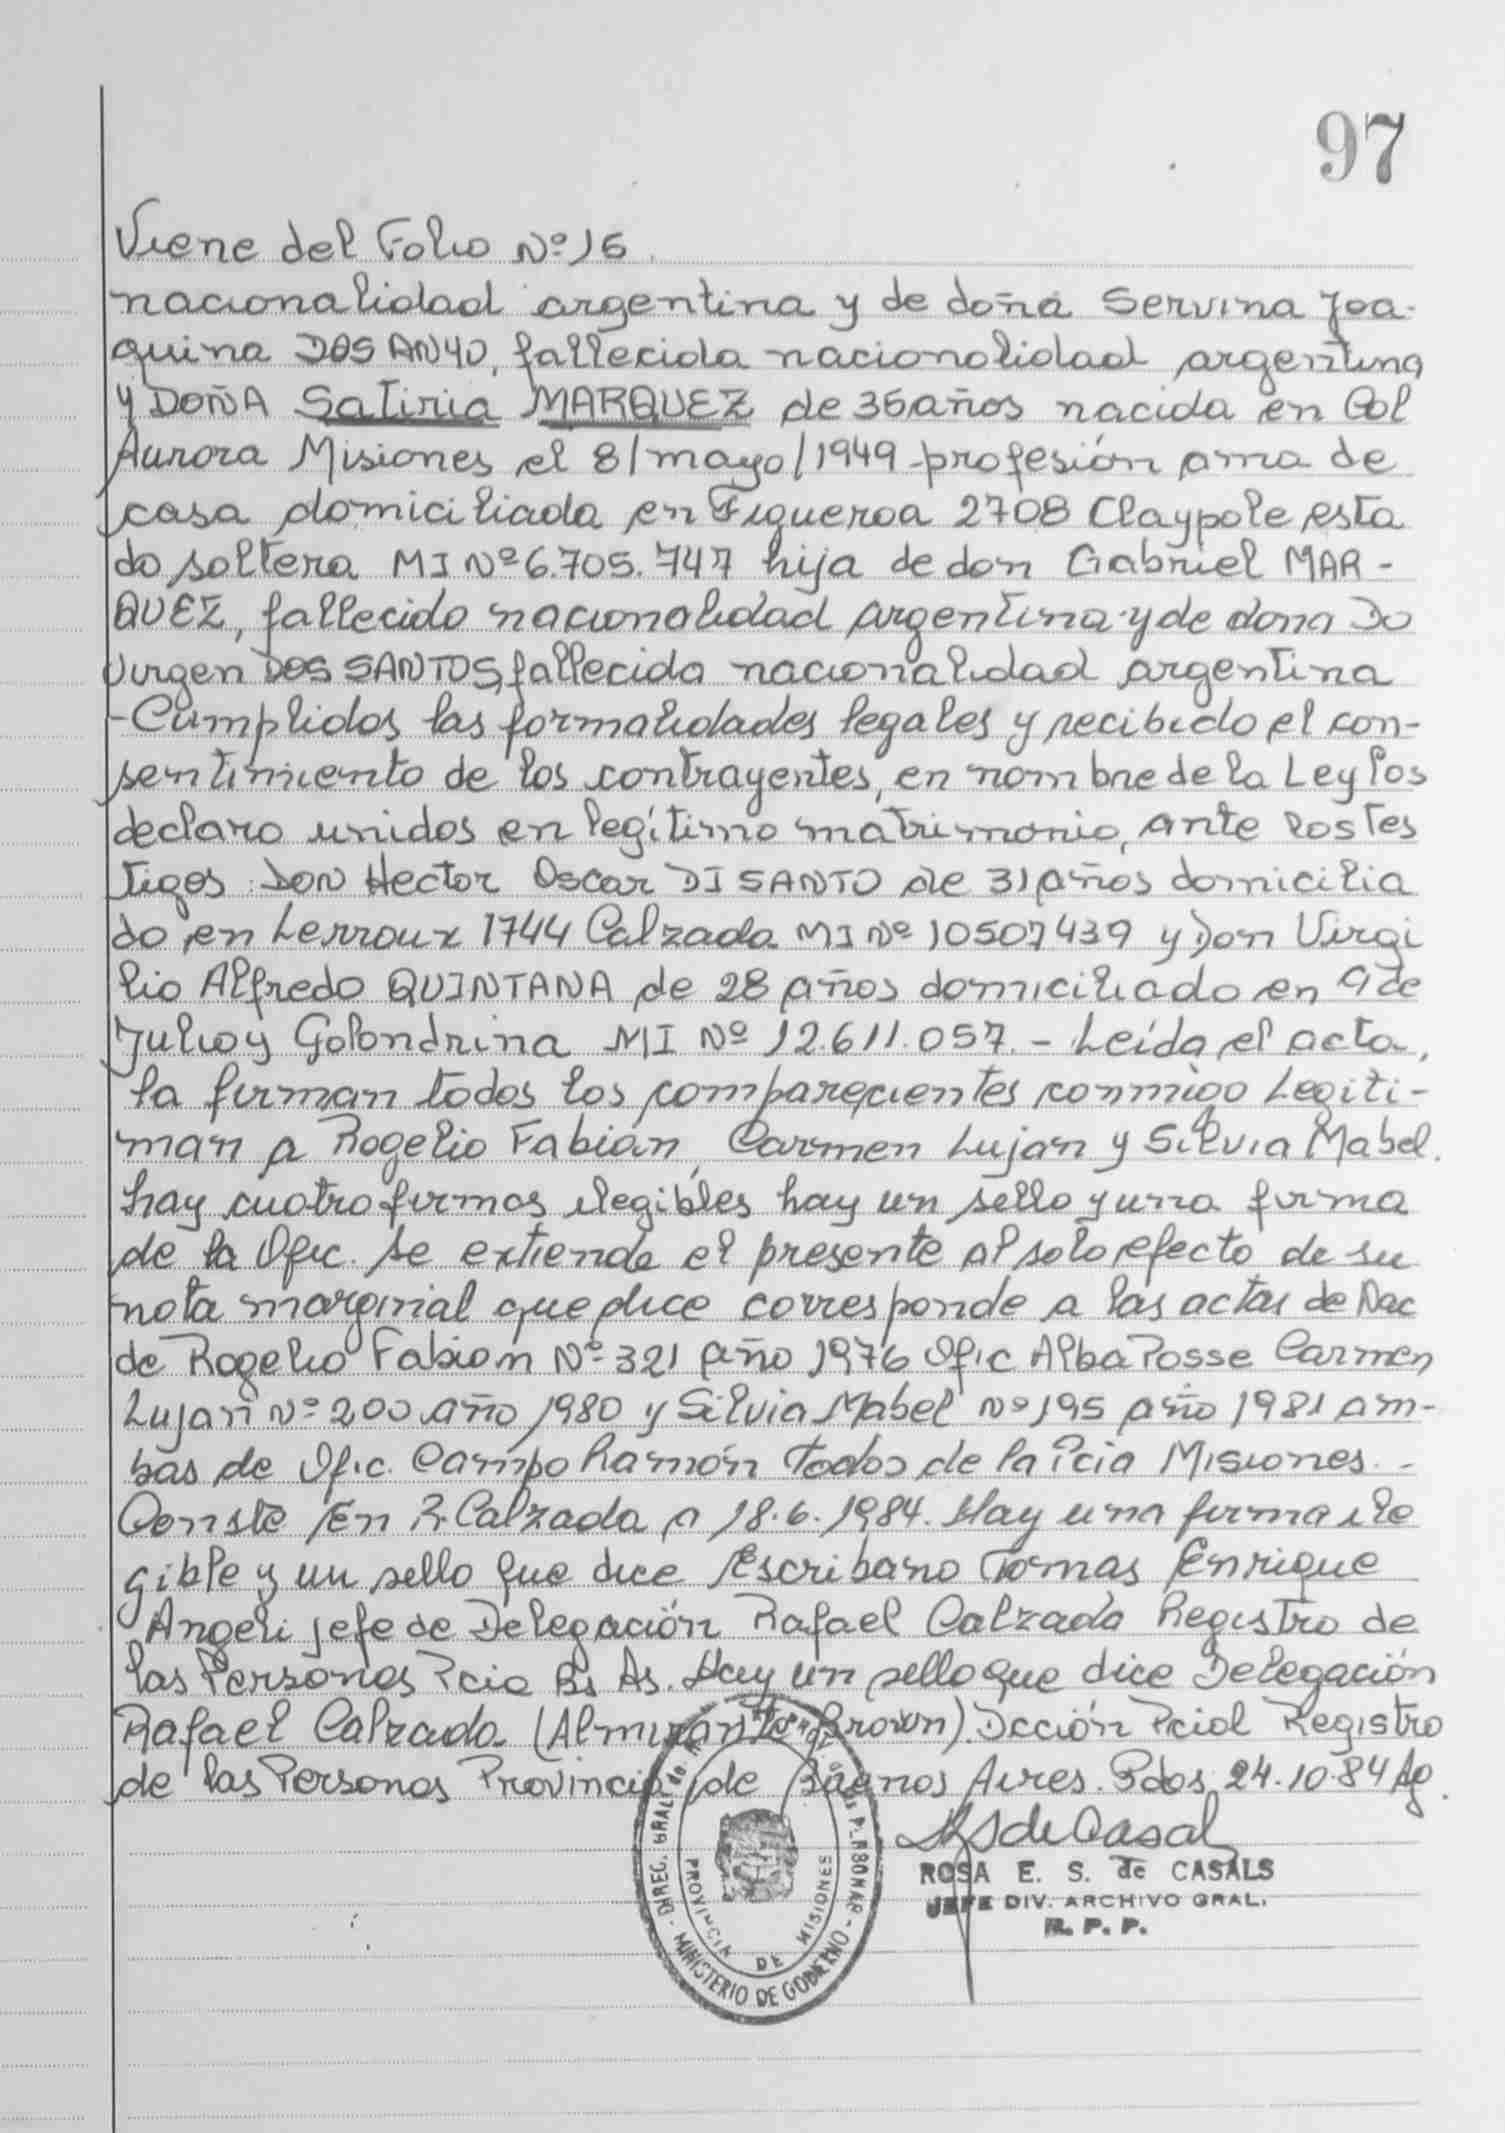 97
Viene del Folio Nº 16
nacionalidad argentina y de doña Servina Joa-
quina DOS ANJO, fallecida nacionalidad argentina
y DOÑA Satiria MARQUEZ de 35 años nacida en Col
Aurora Misiones el 8/mayo/1949 profesión ama de
casa domiciliada en Figueroa 2708 Claypole esta
do soltera MI Nº 6.705.747 hija de don Gabriel MAR-
QUEZ, fallecido nacionalidad argentina y de dona Do
Virgen DOS SANTOS, fallecida nacionalidad argentina
- Cumplidos las formalidades legales y recibido el con-
sentimiento de los contrayentes, en nombre de la Ley los
declaro unidos en legítimo matrimonio, ante los tes
tigos: DON Hector Oscar DI SANTO de 31 años domicilia
do en Lerroux 1744 Calzada MI Nº 10507439 y Don Virgi
lio Alfredo QUINTANA de 28 años domiciliado en 9 de
Julio y Golondrina MI Nº 12.611.057. - Leída el acta,
la firman todos los comparecientes conmigo Legiti-
man a Rogelio Fabián, Carmen Lujan y Silvia Mabel.
hay cuatro firmas ilegibles hay un sello y una firma
de la Ofic. Se extiende el presente al solo efecto de su
nota marginal que dice corresponde a las actas de Nac
de Rogelio Fabian Nº 321 año 1976 Ofic Alba Posse Carmen
Lujan Nº 200 año 1980 y Silvia Mabel Nº 195 año 1981 am-
bas de Ofic. Campo Ramón todos de la Pcia Misiones. -
Conste En R. Calzada a 18.6.1984. Hay una firma ile
gible y un sello que dice Escribano Tomas Enrique
Angeli jefe de Delegación Rafael Calzada Registro de
las Personas Pcia Bs As. Hay un sello que dice Delegación
Rafael Calzada (Almirante Brown). Dcción Pcial Registro
de las Personas Provincia de Buenos Aires. Pdos 24.10.84
ROSA E. S. de CASALS
JEFE DIV. ARCHIVO GRAL.
R. P. P.
PROVINCIA DE MISIONES
MINISTERIO DE GOBIERNO